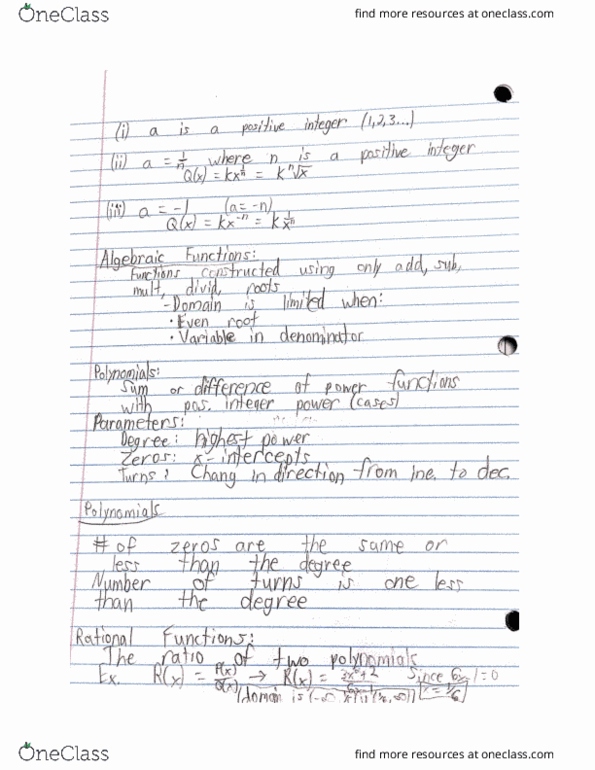 OneClass
find more resources at oneclass.com
(i) a is a positive integer (1,2,3...)
(ii) a = 1/n where n is a positive integer
Q(x) = kx^1/n = k ⁿ√x
(iii) a = -1 (a = -n)
Q(x) = kx^-n = k 1/x^n
Algebraic Functions:
Functions constructed using only add, sub,
mult, divid, roots
- Domain is limited when:
• Even root
• Variable in denominator
Polynomials:
Sum or difference of power functions
with pos. integer power (cases)
Parameters:
Degree: highest power
Zeros: x-intercepts
Turns: Chang in direction from inc. to dec.
Polynomials
# of zeros are the same or
less than the degree
Number of turns is one less
than the degree
Rational Functions:
The ratio of two polynomials
Ex. R(x) = P(x)/Q(x) → R(x) = 3x²+2/6x-1 Since 6x-1=0
domain is x = 1/6
OneClass
find more resources at oneclass.com